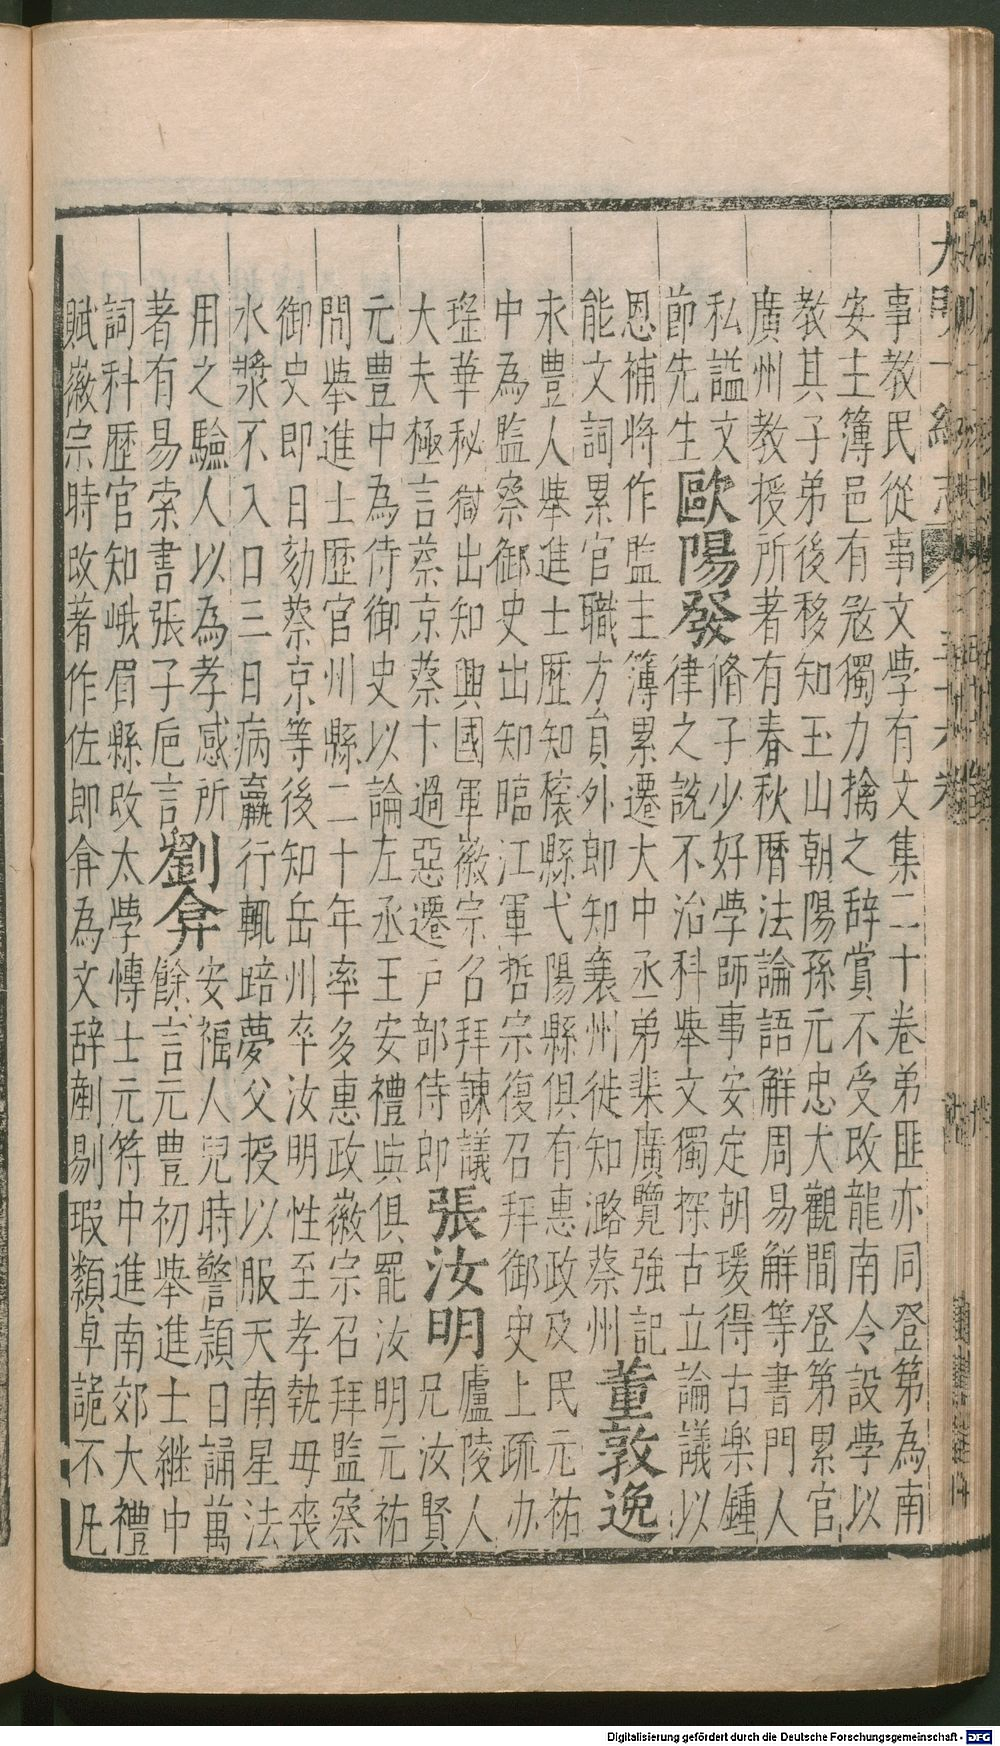 事教民從事文學有文集二十卷弟匪亦同登第為南
安主簿邑有宼獨力擒之辞賞不受改龍南令設學以
教其子弟後移知玉山朝陽孫元忠大觀間登第累官
廣州教授所著有春秋曆法論語解周易解等書門人
私謚文
節先生
歐陽發
脩子少好學師事安定胡瑗得古樂鍾
律之說不治科舉文獨探古立論議以
恩補將作監主簿累遷大中丞弟棐廣覽強記
能文詞累官職方員外郎知襄州徙知潞蔡州
董敦逸
永豐人舉進士歷知穰縣弋陽縣俱有惠政及民元祐
中為監察御史出知臨江軍哲宗復召拜御史上疏办
瑤華秘獄出知興國軍徽宗召拜諫議
大夫極言蔡京蔡卞過惡遷户部侍郎
張汝明
廬陵人
兄汝賢
元豐中為侍御史以論左丞王安禮與俱罷汝明元祐
間舉進士歷官州縣二十年率多惠政徽宗召拜監察
御史即日劾蔡京等後知岳州卒汝明性至孝執母喪
水漿不入口三日病羸行輒踣夢父授以服天南星法
用之驗人以為孝感所
著有易索書張子巵言
劉弇
安福人兒時警頴日誦萬
餘言元豐初舉進士継中
詞科歷官知峨眉縣改太學愽士元符中進南郊大禮
賦徽宗時改著作佐郎弇為文辞剷剔瑕纇卓詭不凡
Digitalisierung gefördert durch die Deutsche Forschungsgemeinschaft - DFG